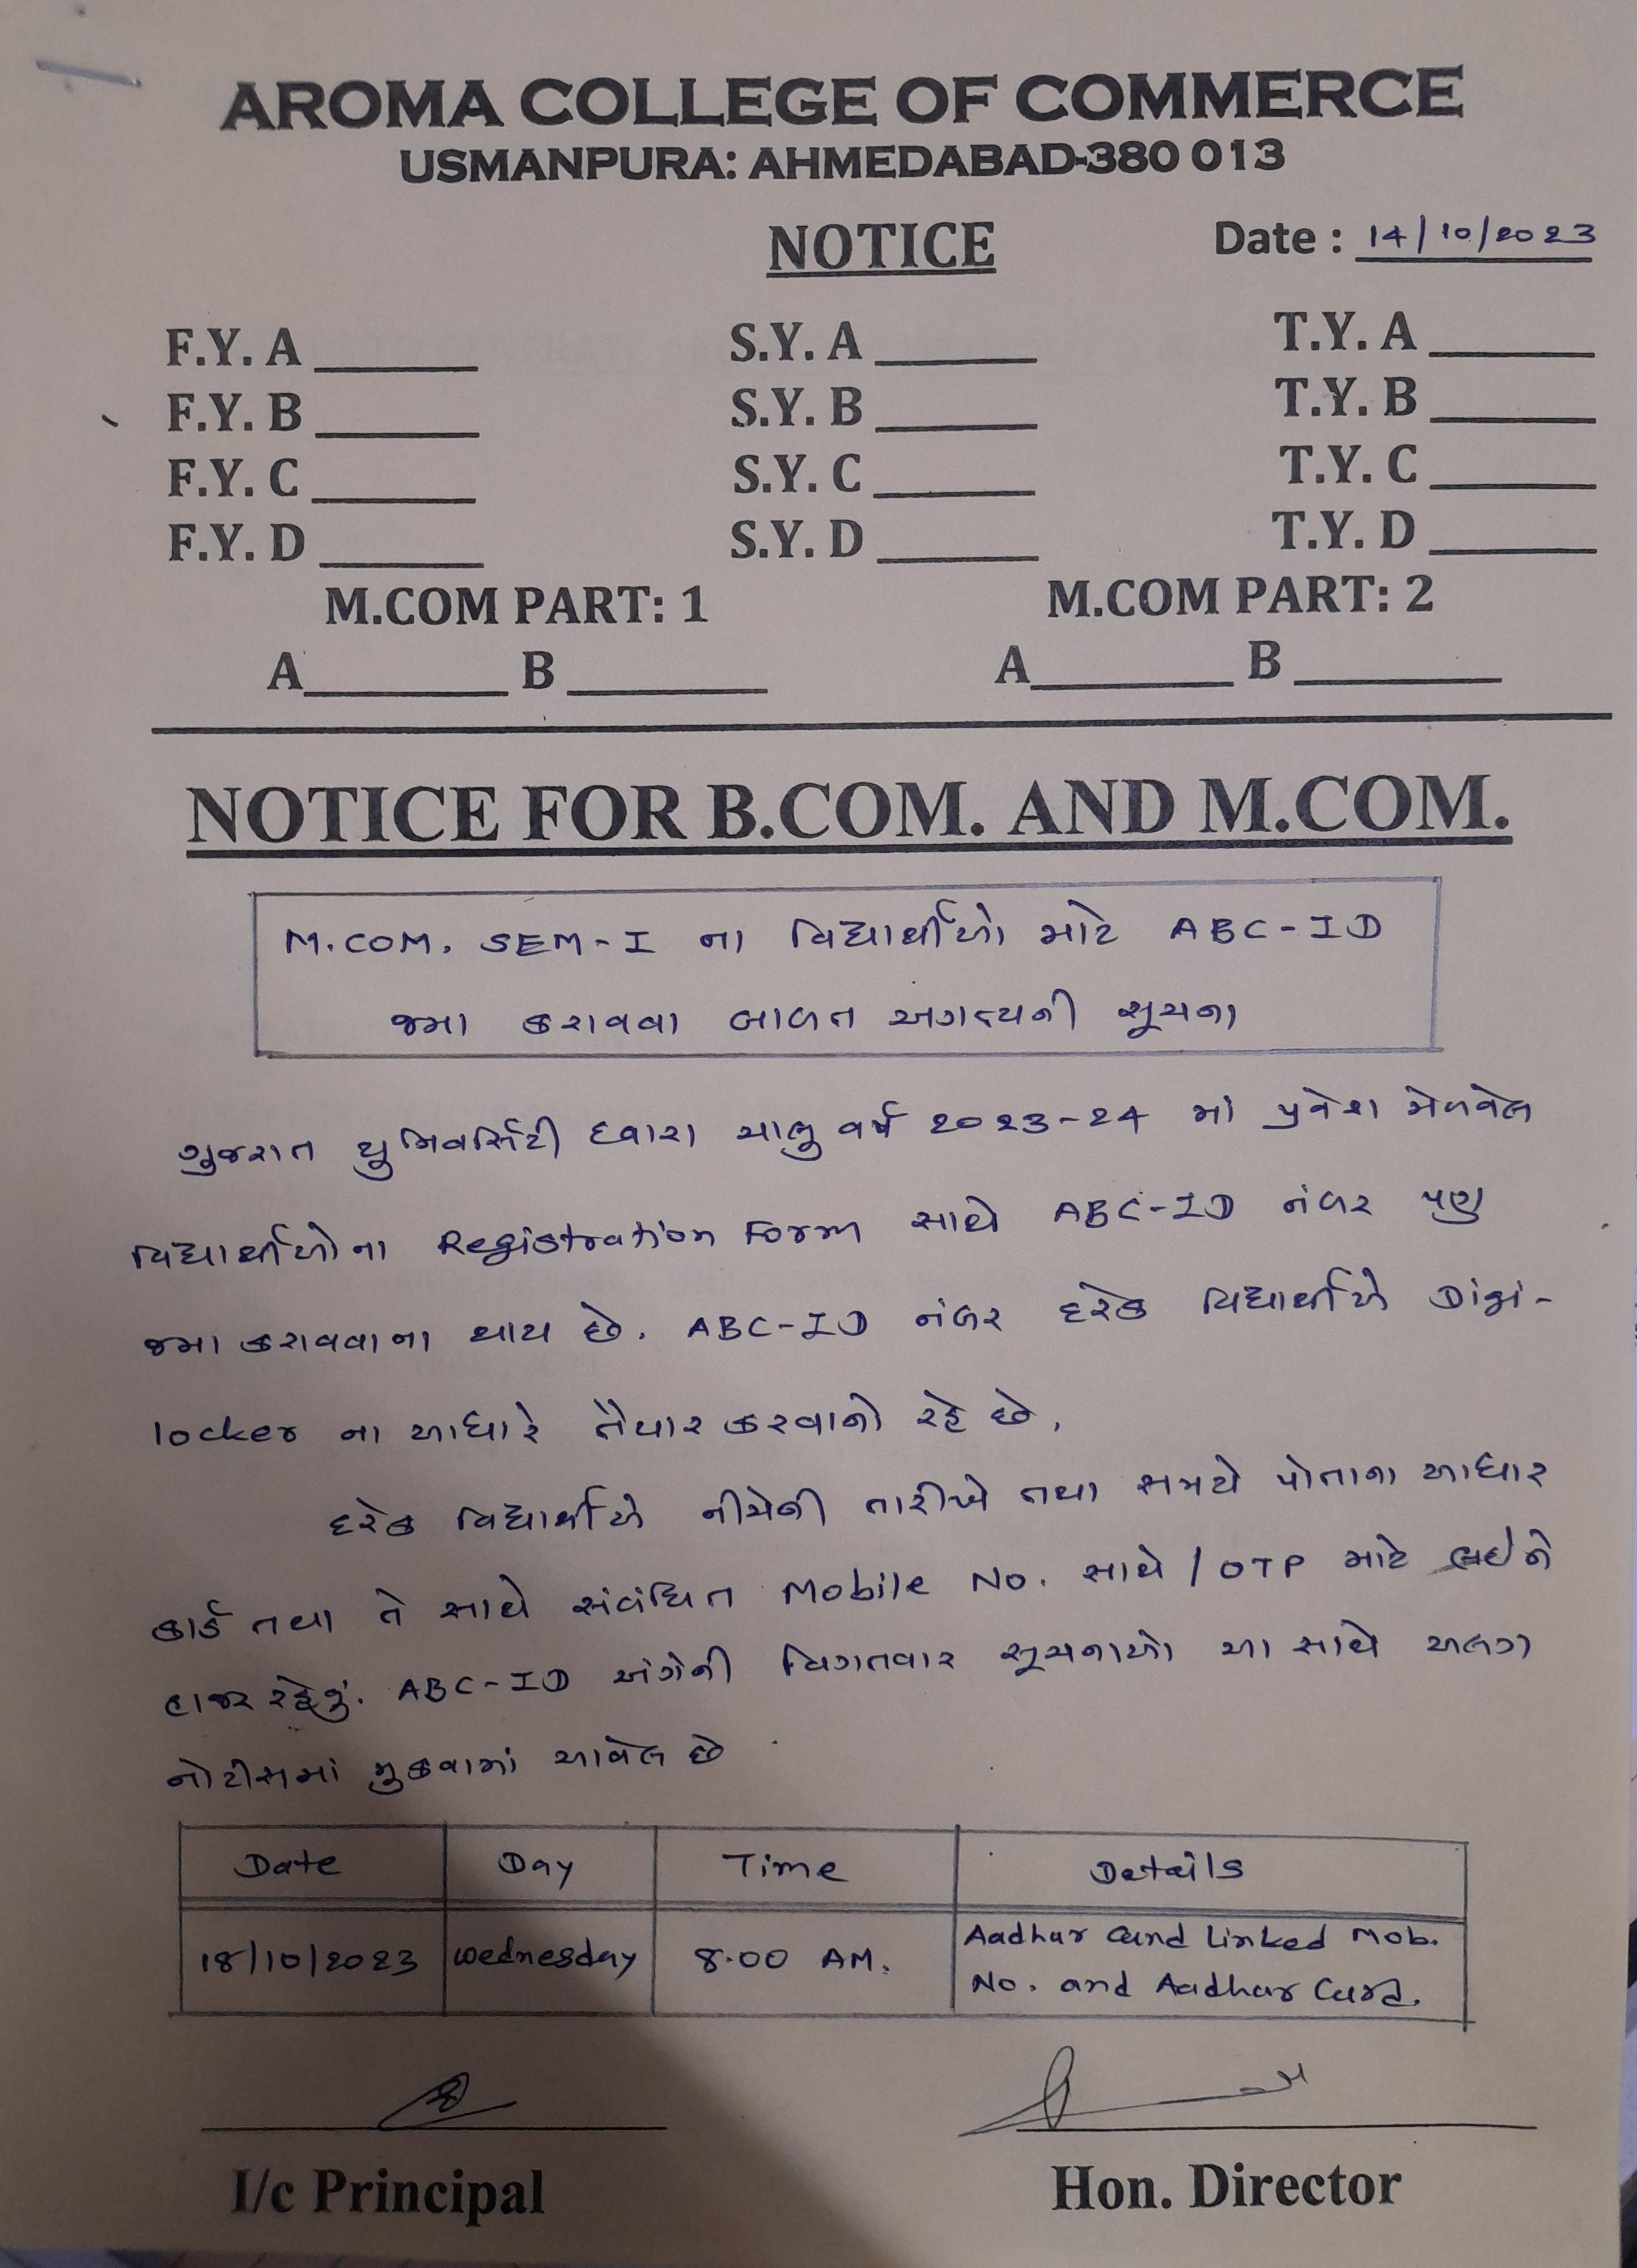 AROMA COLLEGE OF COMMERCE
USMANPURA: AHMEDABAD-380 013
NOTICE
Date : 14/10/2023
F.Y. A ______ S.Y. A ______ T.Y. A ______
F.Y. B ______ S.Y. B ______ T.Y. B ______
F.Y. C ______ S.Y. C ______ T.Y. C ______
F.Y. D ______ S.Y. D ______ T.Y. D ______
M.COM PART: 1 M.COM PART: 2
A______ B______ A______ B______
NOTICE FOR B.COM. AND M.COM.
M.COM. SEM-I ના વિદ્યાર્થીઓ માટે ABC-ID
જમા કરાવવા બાબત અગત્યની સૂચના
ગુજરાત યુનિવર્સિટી દ્વારા ચાલુ વર્ષ 2023-24 માં પ્રવેશ મેળવેલ
વિદ્યાર્થીઓના Registration Form સાથે ABC-ID નંબર પણ
જમા કરાવવાના થાય છે. ABC-ID નંબર દરેક વિદ્યાર્થીએ Digi-
locker ના આધારે તૈયાર કરવાનો રહે છે.
દરેક વિદ્યાર્થીએ નીચેની તારીખે તથા સમયે પોતાના આધાર
કાર્ડ તથા તે સાથે સંબંધિત Mobile No. સાથે / OTP માટે લઈને
હાજર રહેવું. ABC-ID અંગેની વિગતવાર સૂચનાઓ આ સાથે અલગ
નોટીસમાં મુકવામાં આવેલ છે
Date Day Time Details
18/10/2023 Wednesday 8.00 AM. Aadhar Card Linked Mob.
No. and Aadhar Card.
I/c Principal Hon. Director